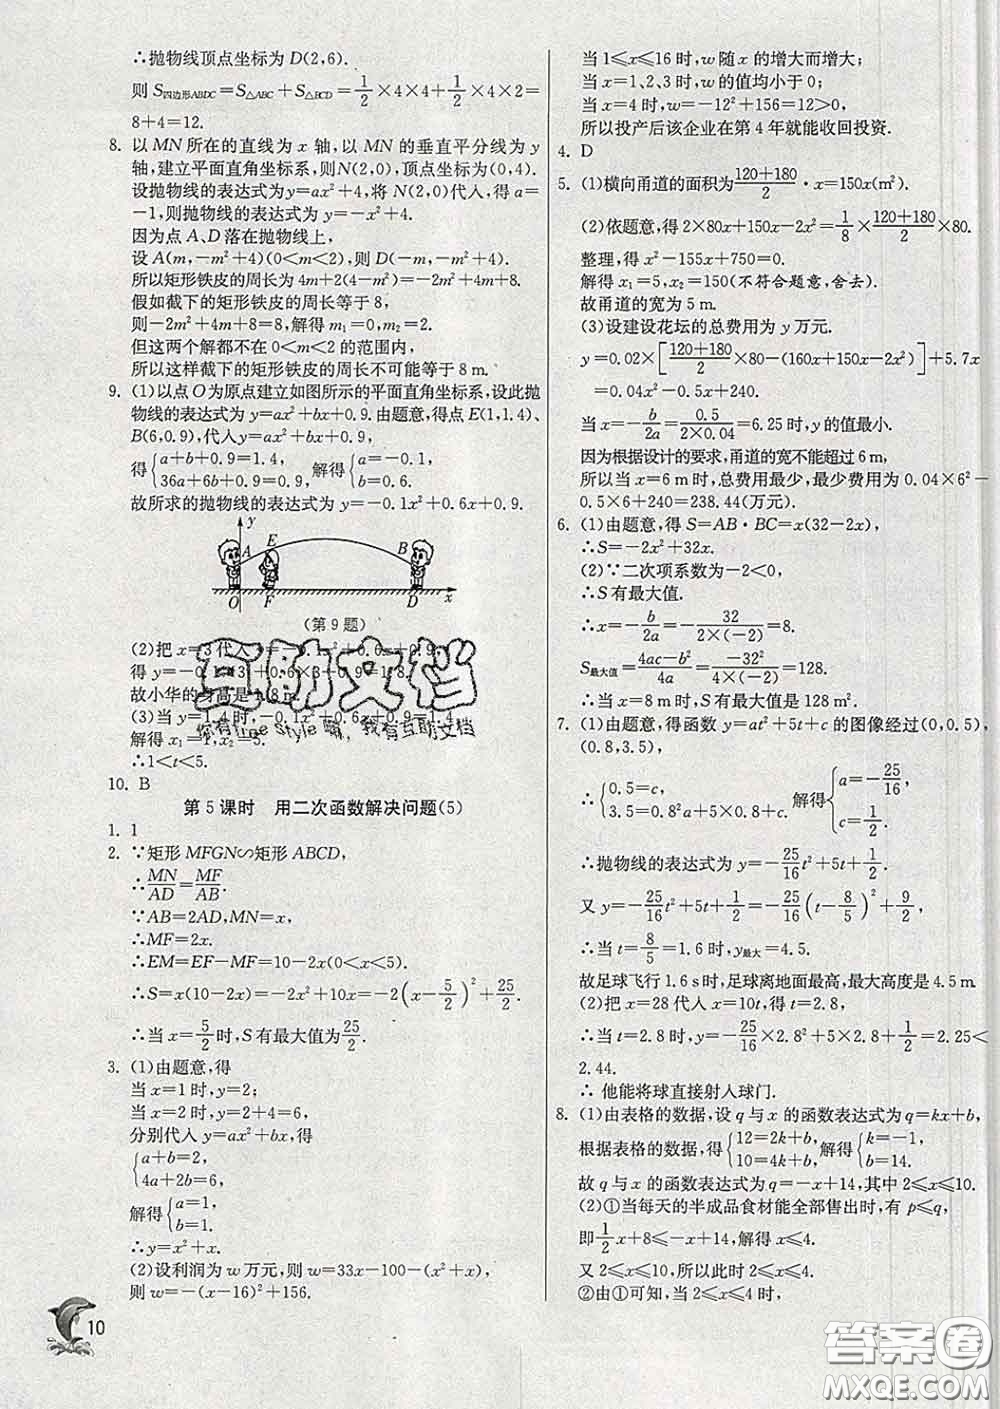 ∴抛物线顶点坐标为 D(2,6).
则 S四边形ABDC=S△ABC+S△BCD=1/2×4×4+1/2×4×2=
8+4=12.
8. 以 MN 所在的直线为 x 轴,以 MN 的垂直平分线为 y
轴,建立平面直角坐标系,则N(2,0),顶点坐标为(0,4).
设抛物线的表达式为y=ax²+4,将 N(2,0)代入,得 a=
-1,则抛物线的表达式为y=-x²+4.
因为点 A、D 落在抛物线上,
设 A(m,-m²+4)(0<m<2),则D(-m,-m²+4).
所以矩形铁皮的周长为4m+2(4-m²)=-2m²+4m+8.
假如截下的矩形铁皮的周长等于8,
则-2m²+4m+8=8,解得 m₁=0,m₂=2.
但这两个解都不在 0<m<2 的范围内,
所以这样截下的矩形铁皮的周长不可能等于8 m.
9. (1)以点O为原点建立如图所示的平面直角坐标系,设此抛
物线的表达式为 y=ax²+bx+0.9.由题意,得点E(1,1.4)、
B(6,0.9),代入y=ax²+bx+0.9,
得{a+b+0.9=1.4, 36a+6b+0.9=0.9. 解得{a=-0.1, b=0.6.
故所求的抛物线的表达式为 y=-0.1x²+0.6x+0.9.
y
A E B
O F D x
(第 9 题)
(2)把 x=3代入 y=-0.1x²+0.6x+0.9,
得 y=-0.1×3²+0.6×3+0.9=1.8.
故小华的身高是1.8 m.
(3)当 y=1.4时,-0.1x²+0.6x+0.9=1.4,
解得 x₁=1,x₂=5.
∴1<t<5.
互助文档
你有free style嘛,我有互助文档
10. B
第 5 课时 用二次函数解决问题(5)
1. 1
2. ∵矩形 MFGN∽矩形 ABCD,
∴MN/AD=MF/AB.
∵AB=2AD,MN=x,
∴MF=2x.
∴EM=EF-MF=10-2x(0<x<5).
∴S=x(10-2x)=-2x²+10x=-2(x-5/2)²+25/2.
∴当 x=5/2时,S 有最大值为25/2.
3. (1)由题意,得
当 x=1 时,y=2;
当 x=2 时,y=2+4=6,
分别代入 y=ax²+bx,得
{a+b=2, 4a+2b=6,
解得{a=1, b=1.
∴y=x²+x.
(2)设利润为 w 万元,则 w=33x-100-(x²+x),
则 w=-(x-16)²+156.
10
当 1≤x≤16 时,w 随 x 的增大而增大;
当 x=1、2、3 时,w 的值均小于 0;
当 x=4 时,w=-12²+156=12>0,
所以投产后该企业在第 4 年就能收回投资.
4. D
5. (1)横向甬道的面积为(120+180)/2·x=150x(m²).
(2)依题意,得 2×80x+150x-2x²=1/8×(120+180)/2×80.
整理,得 x²-155x+750=0.
解得 x₁=5,x₂=150(不符合题意,舍去).
故甬道的宽为 5 m.
(3)设建设花坛的总费用为 y 万元.
y=0.02×[(120+180)/2×80-(160x+150x-2x²)]+5.7x
=0.04x²-0.5x+240.
当 x=-b/2a=0.5/(2×0.04)=6.25 时,y的值最小.
因为根据设计的要求,甬道的宽不能超过 6 m,
所以当 x=6 m 时,总费用最少,最少费用为 0.04×6²-
0.5×6+240=238.44(万元).
6. (1)由题意,得 S=AB·BC=x(32-2x),
∴S=-2x²+32x.
(2)∵二次项系数为-2<0,
∴S 有最大值.
∴x=-b/2a=-32/(2×(-2))=8.
S最大值=(4ac-b²)/4a=-32²/(4×(-2))=128.
∴当 x=8 m 时,S 有最大值是 128 m²
7. (1)由题意,得函数 y=at²+5t+c 的图像经过(0,0.5),
(0.8,3.5),
∴{0.5=c, 3.5=0.8²a+5×0.8+c. 解得{a=-25/16, c=1/2.
∴抛物线的表达式为 y=-25/16t²+5t+1/2.
又 y=-25/16t²+5t+1/2=-25/16(t-8/5)²+9/2,
∴当 t=8/5=1.6 时,y最大=4.5.
故足球飞行1.6 s时,足球离地面最高,最大高度是4.5 m.
(2)把 x=28 代入 x=10t,得 t=2.8,
∴当 t=2.8 时,y=-25/16×2.8²+5×2.8+1/2=2.25<
2.44.
∴ 他能将球直接射入球门.
8. (1)由表格的数据,设 q 与 x 的函数表达式为 q=kx+b,
根据表格的数据,得{12=2k+b, 10=4k+b, 解得{k=-1, b=14.
故 q 与 x 的函数表达式为 q=-x+14,其中 2≤x≤10.
(2)①当每天的半成品食材能全部售出时,有 p≤q,
即1/2x+8≤-x+14,解得 x≤4.
又 2≤x≤10,所以此时 2≤x≤4.
②由①可知,当 2≤x≤4 时,
答案圈
MXQE.COM